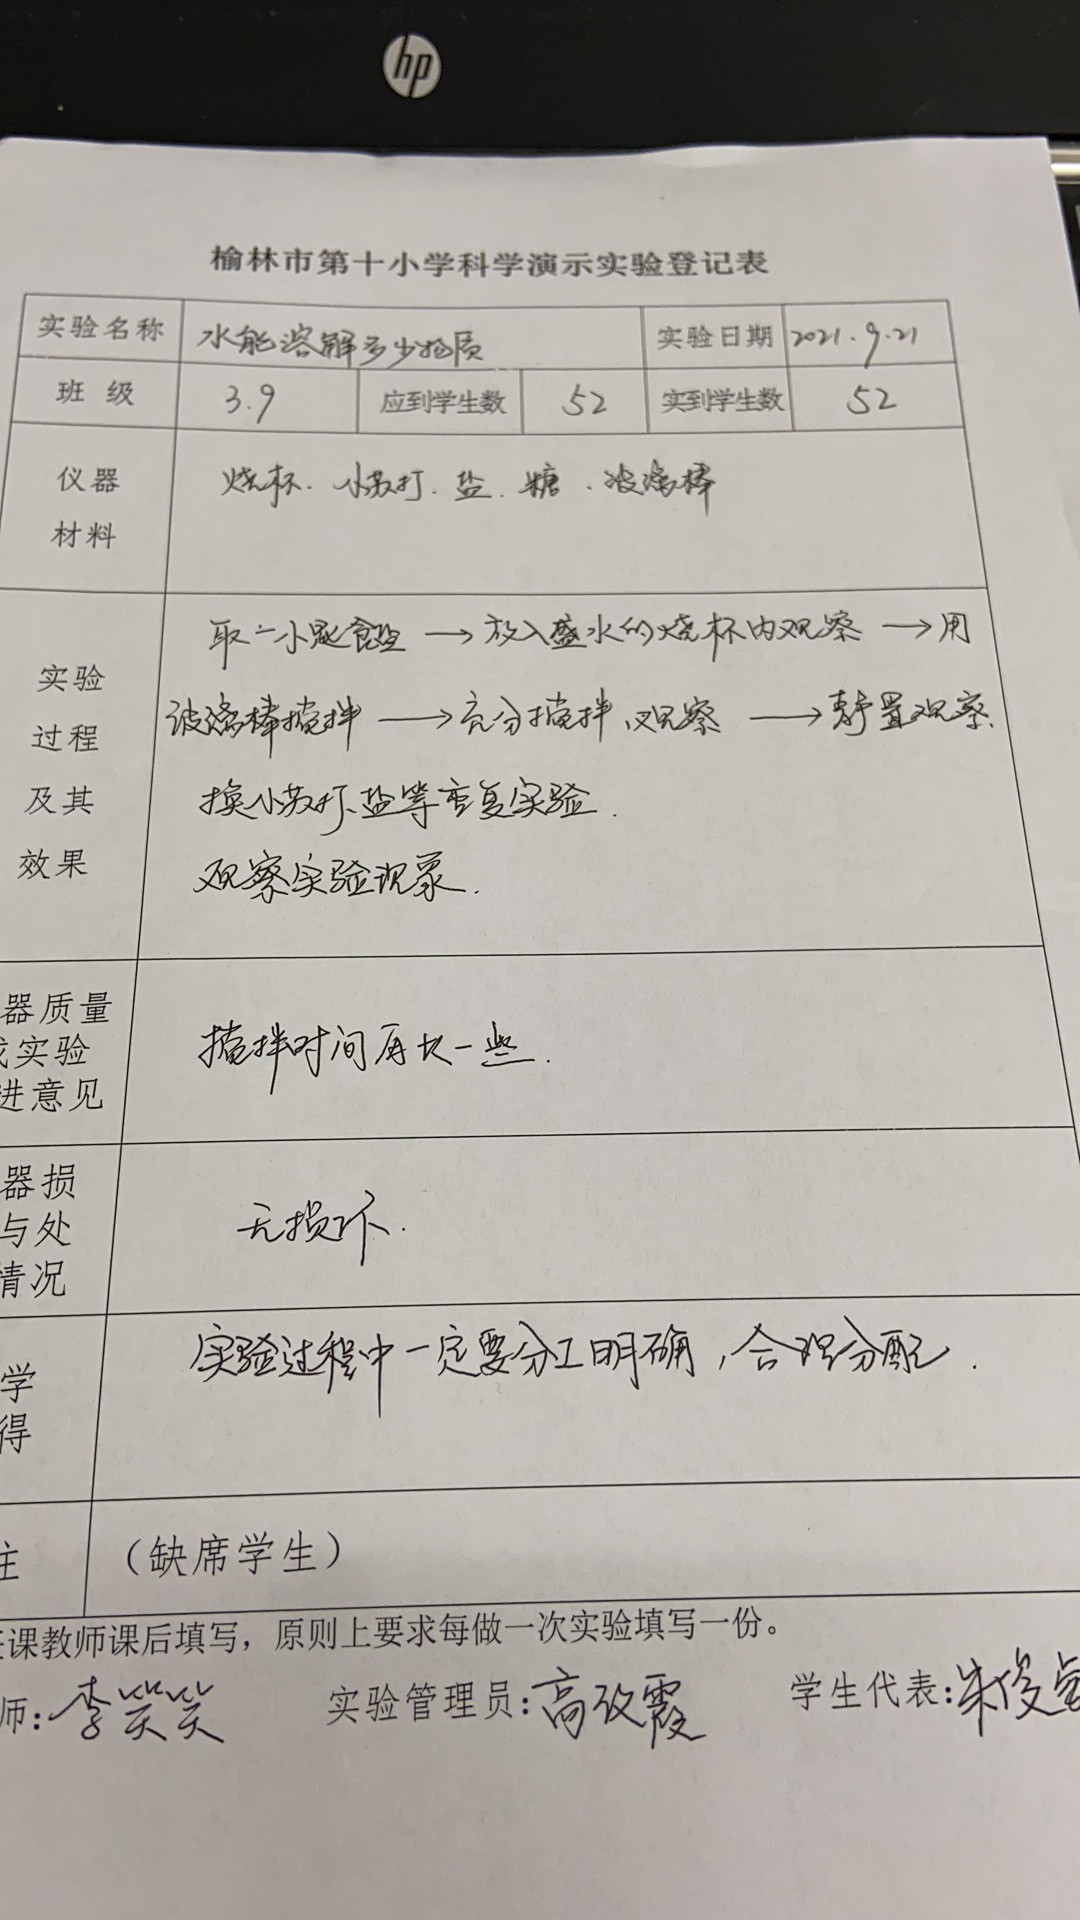 hp
榆林市第十小学科学演示实验登记表
实验名称 水能溶解多少物质 实验日期 2021.9.21
班级 3.9 应到学生数 52 实到学生数 52
仪器
材料
烧杯、小苏打、盐、糖、玻璃棒
实验
过程
及其
效果
取一小匙食盐→放入盛水的烧杯内观察→用
玻璃棒搅拌→充分搅拌、观察→静置观察.
换小苏打、盐等重复实验.
观察实验现象.
器质量
实验
进意见
搅拌时间再长一些.
器损
与处
情况
无损坏.
学
得
实验过程中一定要分工明确,合理分配.
注
(缺席学生)
课教师课后填写,原则上要求每做一次实验填写一份。
师:李笑笑 实验管理员:高改霞 学生代表:朱俊